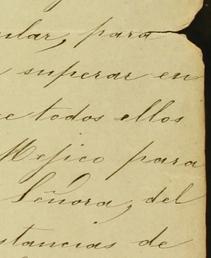 ular, para
superar en
e todos ellos
Mejico para
Señora, del
stancias de